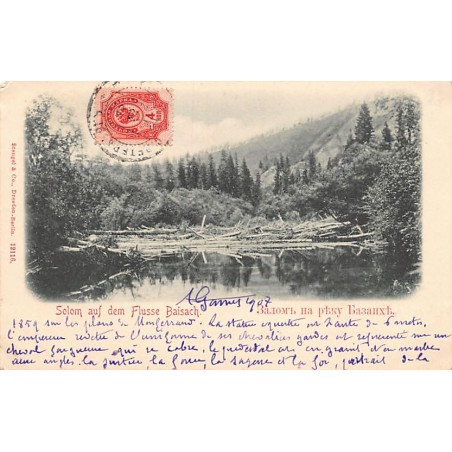 Stengel & Co., Dresden-Berlin. 12116.
Solom auf dem Flusse Baisach
Заломъ на рѣку Базанхѣ.
1907
1859 sur les plans de Montferrand. La statue equestre est haute de 6 metres.
L'empereur revêtu de l'uniforme de ses chevaliers gardes est représenté sur un
cheval fougueux qui se cabre, le piedestal est en granit et en marbre
aux angles. la justice la force, la sagesse et la foi, portrait de la